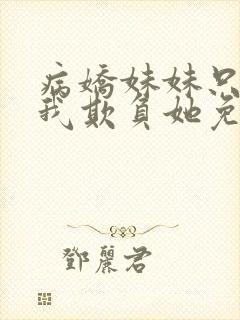 病嬌妹妹只
我欺負她免
鄧麗君